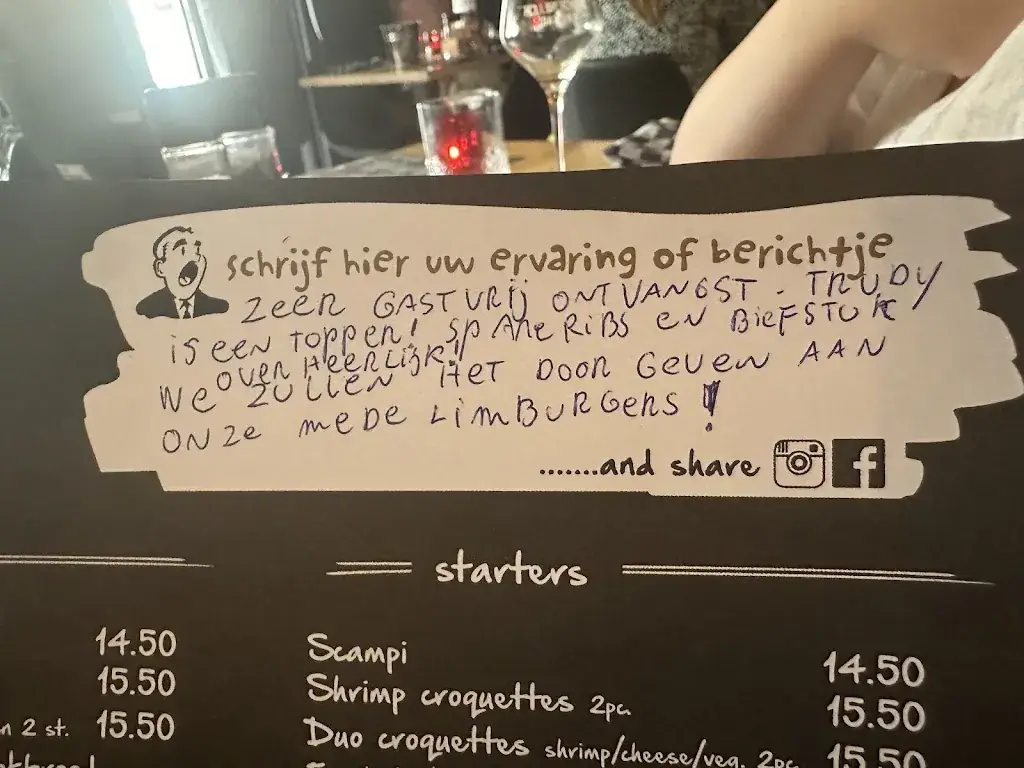 schrijf hier uw ervaring of berichtje
ZEER GASTVRIJ ONTVANGST. TRUDY
IS EEN TOPPER! SPARERIBS EN BIEFSTUK
OVERHEERLIJK!
WE ZULLEN HET DOOR GEVEN AAN
ONZE MEDE LIMBURGERS!
.......and share
f
starters
14.50
15.50
n 2 st. 15.50
Scampi 14.50
Shrimp croquettes 2pc. 15.50
Duo croquettes shrimp/cheese/veg. 2pc. 15.50